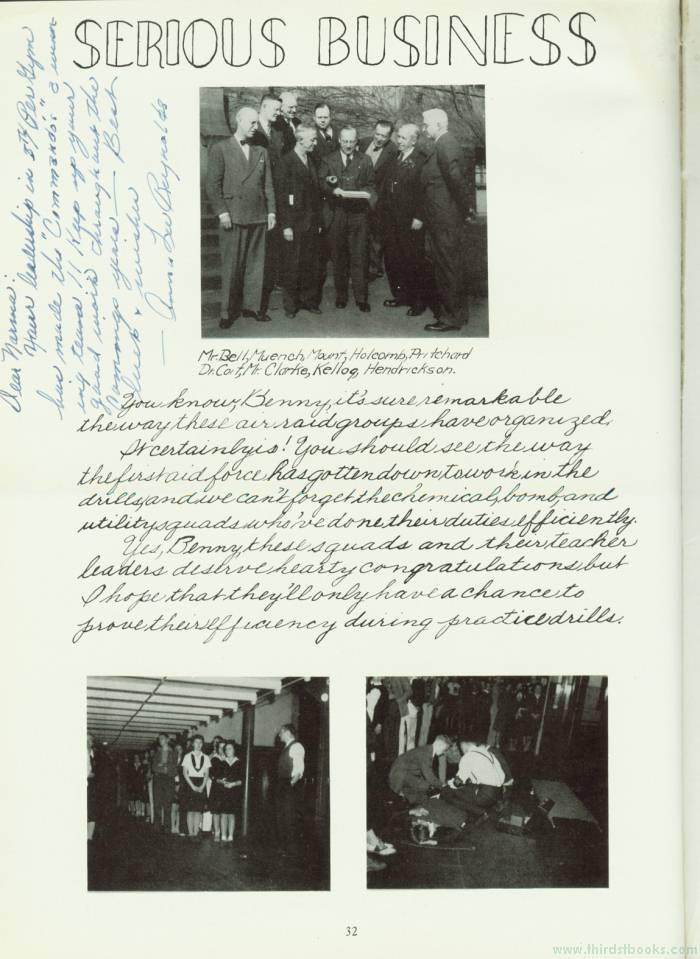 SERIOUS BUSINESS
Dear Norma:
Your leadership in 5th Per Gym
has made the "Commandos" a winn-
ing team!! Keep up your
good work throughout the
coming years — Best
luck & wishes
— Anna Lu Reynolds
Mr. Bell, Muench, Mount, Holcomb, Pritchard
Dr. Coit, Mr. Clarke, Kellog, Hendrickson.
You know, Benny, it's sure remarkable
the way these air raid groups have organized.
It certainly is! You should see the way
the first aid force has gotten down to work in the
drills, and we can't forget the chemical, bomb, and
utility squads who've done their duties efficiently.
Yes, Benny, these squads and their teacher
leaders deserve hearty congratulations but
I hope that they'll only have a chance to
prove their efficiency during practice drills.
32
www.thirdstbooks.com